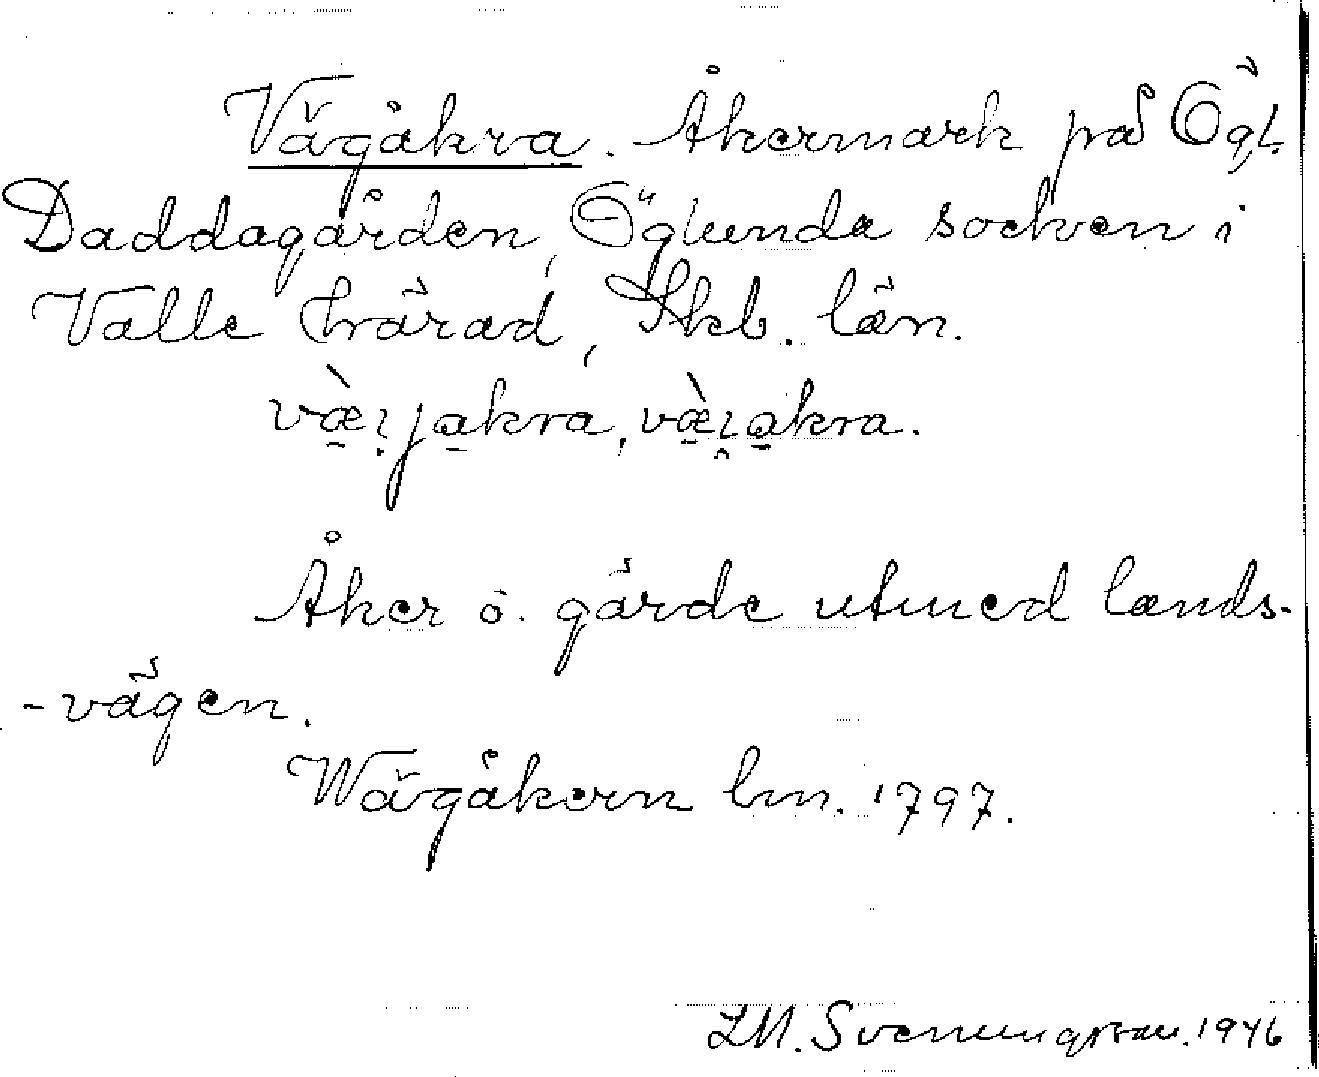 Vägåkra. Åkermark på Ögl.
Daddagården, Öglunda socken i
Valle härad, Skb. län.
Åker ö. gärde utmed lands-
-vägen.
Wägåkern lm. 1797.
LM. Svenungsson. 1946